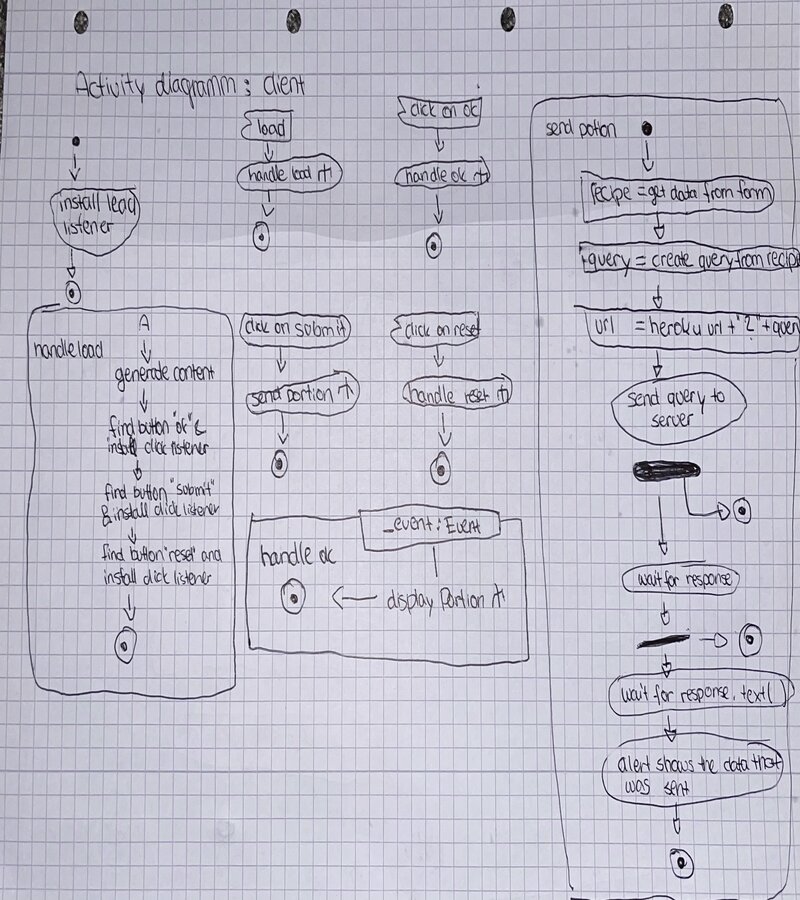 Activity diagramm: client
install load
listener
load
handle load
click on ok
handle ok
handle load
A
generate content
find button "ok" &
install click listener
find button "submit"
& install click listener
find button "reset" and
install click listener
click on submit
send portion
click on reset
handle reset
_event: Event
handle ok
display Portion
send potion
recipe = get data from form
query = create query from recip
url = heroku url + "?" + quer
send query to
server
wait for response
wait for response.text()
alert shows the data that
was sent